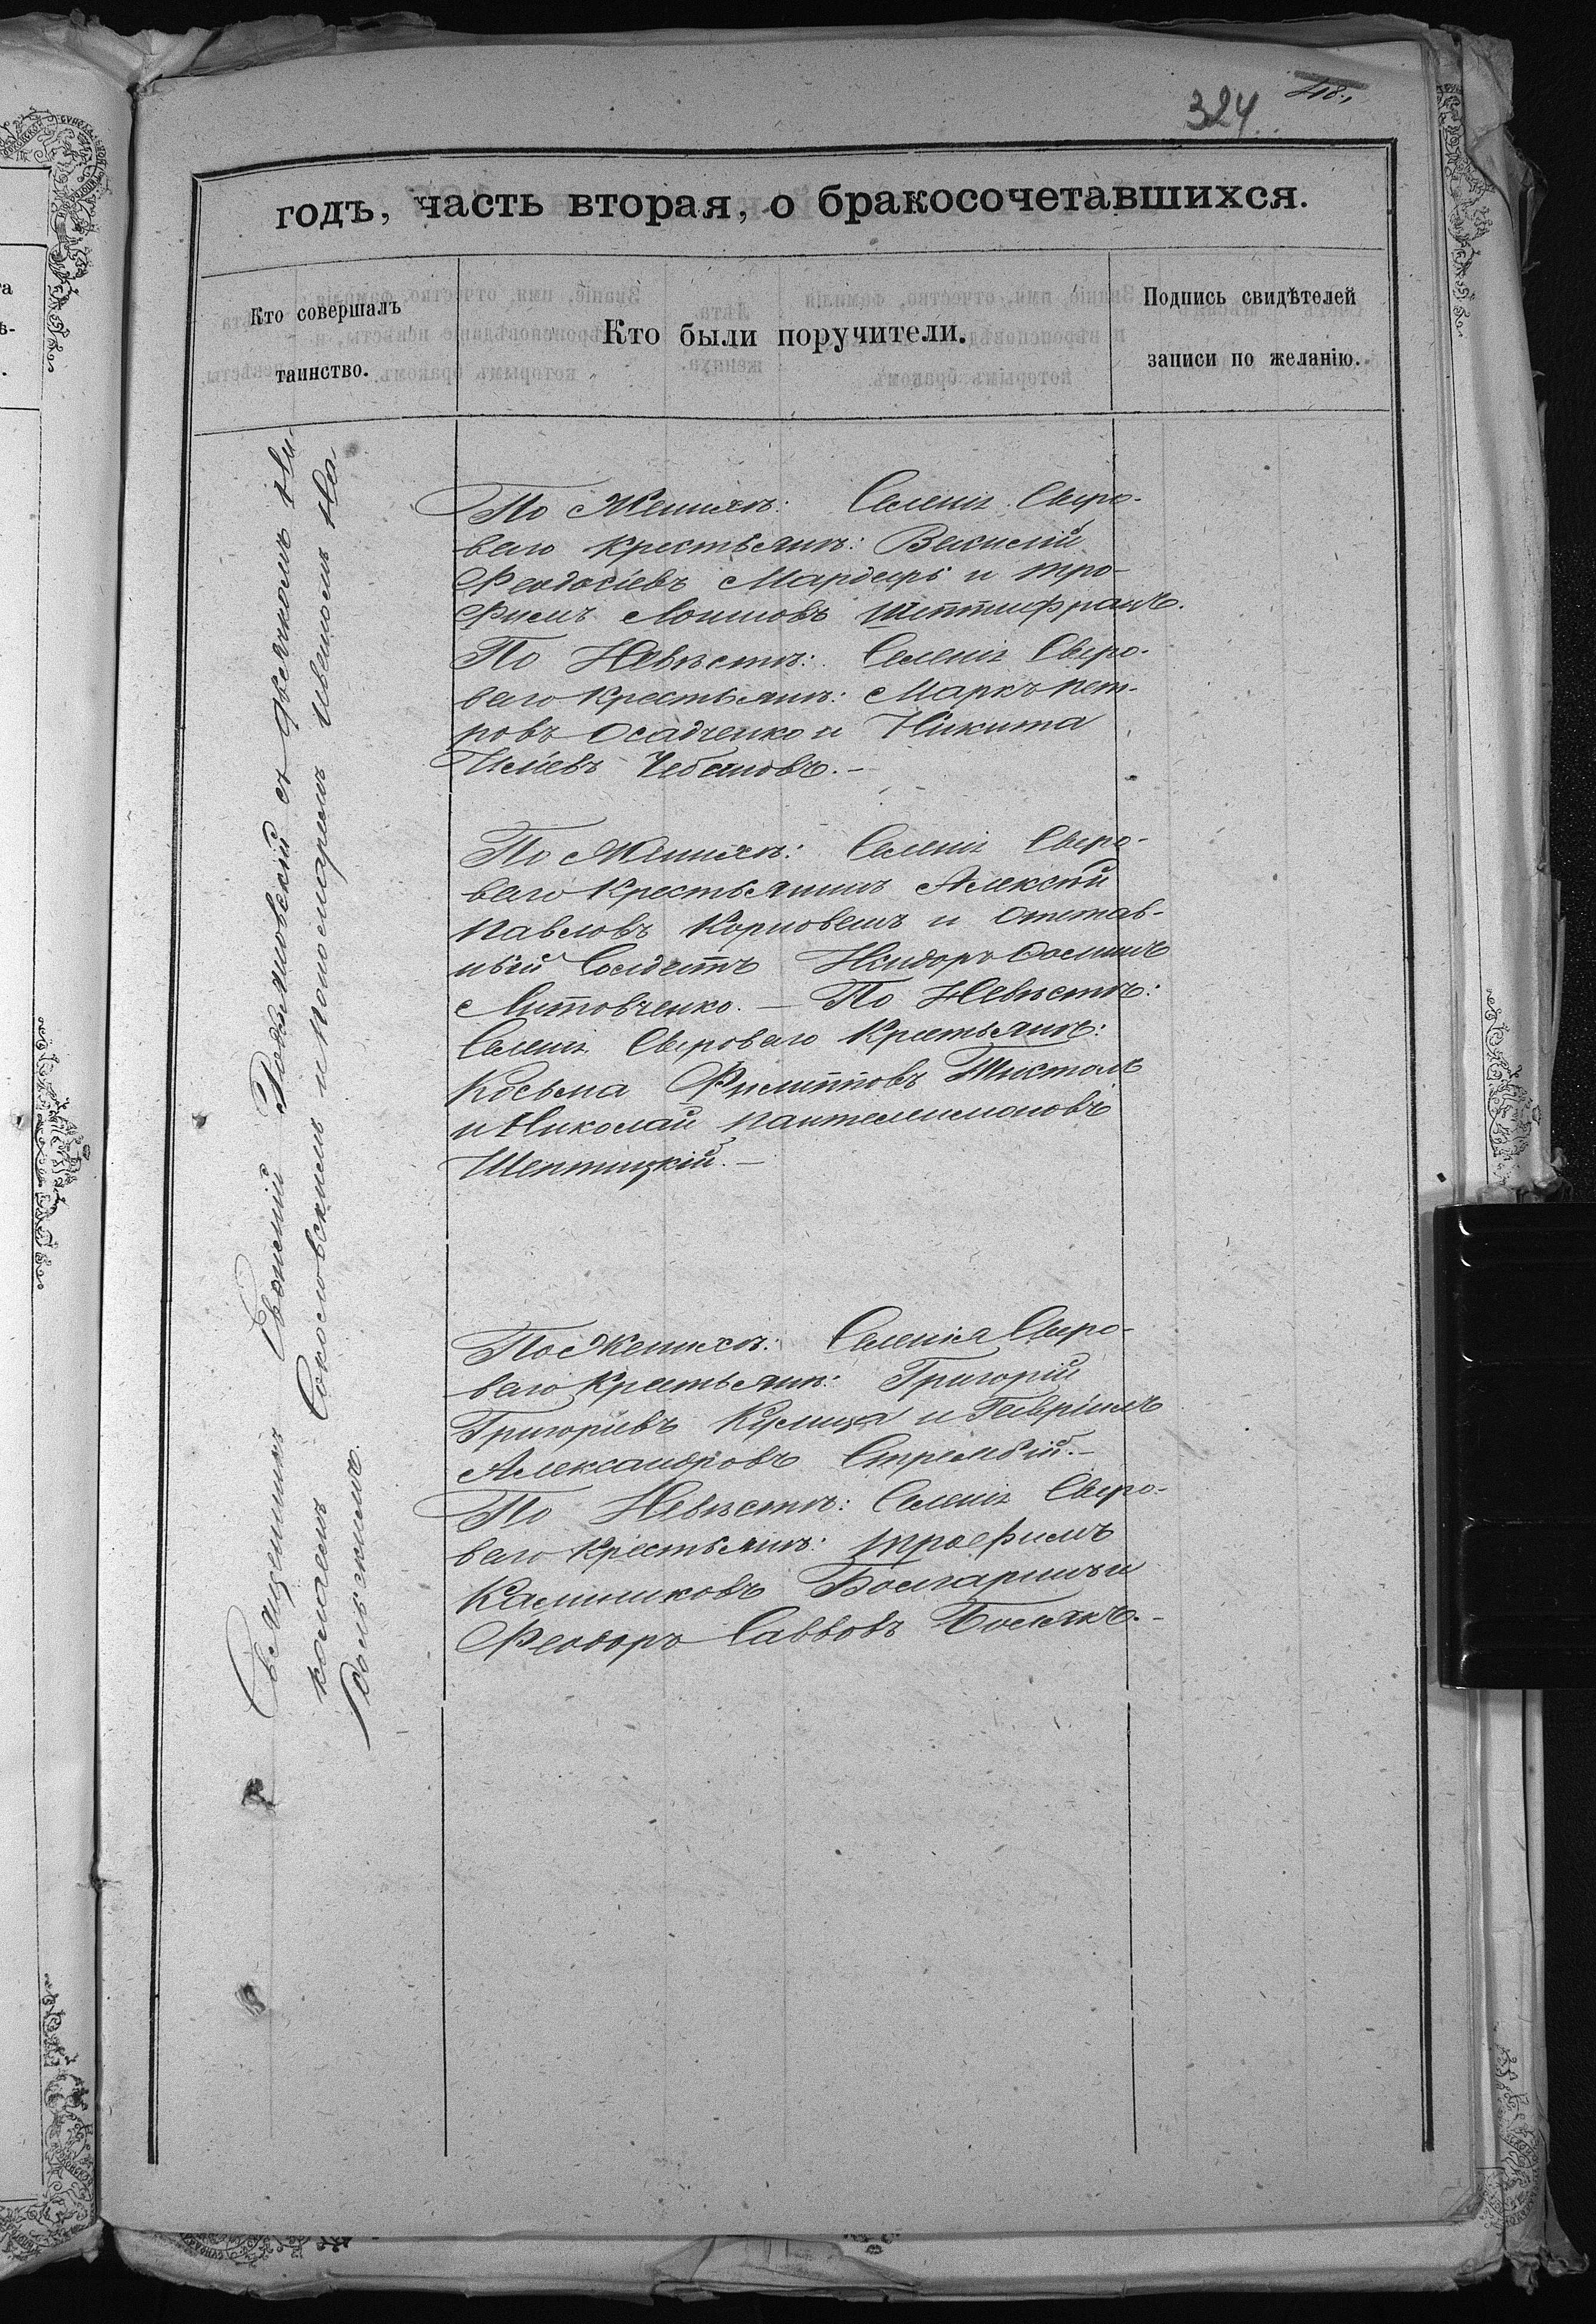 324
418.
годъ, часть вторая, о бракосочетавшихся.
Кто совершалъ
таинство.
Кто были поручители.
Подпись свидѣтелей
записи по желанію.
Священникъ Евфимій с дьячкомъ Ни-
колаемъ Соколовскимъ и пономаремъ Иваномъ На
По Женихѣ: Селенія Сыро-
ваго крестьяне: Василій
Феодосіевъ Мардарь и Тро-
фимъ
По Невѣстѣ: Селенія Сыро-
ваго крестьяне: Маркъ Пет-
ровъ Осадченко и Никита
Иліевъ Чебановъ.-
По Женихѣ: Селенія Сыро-
ваго Крестьянинъ Алексѣй
Павловъ Корнованъ и Отстав-
ный Солдатъ
Литовченко. - По Невѣстѣ:
Селенія Сыроваго Крестьяне:
Косьма Филипповъ
и Николай Пантелеимоновъ
Шептицкій.-
По Женихѣ: Селенія Сыро-
ваго Крестьяне: Григорій
Григоріевъ Кулица и Гавріилъ
Александровъ Стрембій.-
По Невѣстѣ: Селенія Сыро-
ваго Крестьяне: Трофимъ
Калинниковъ Болгаринъ и
Феодоръ Саввовъ Болякъ.-